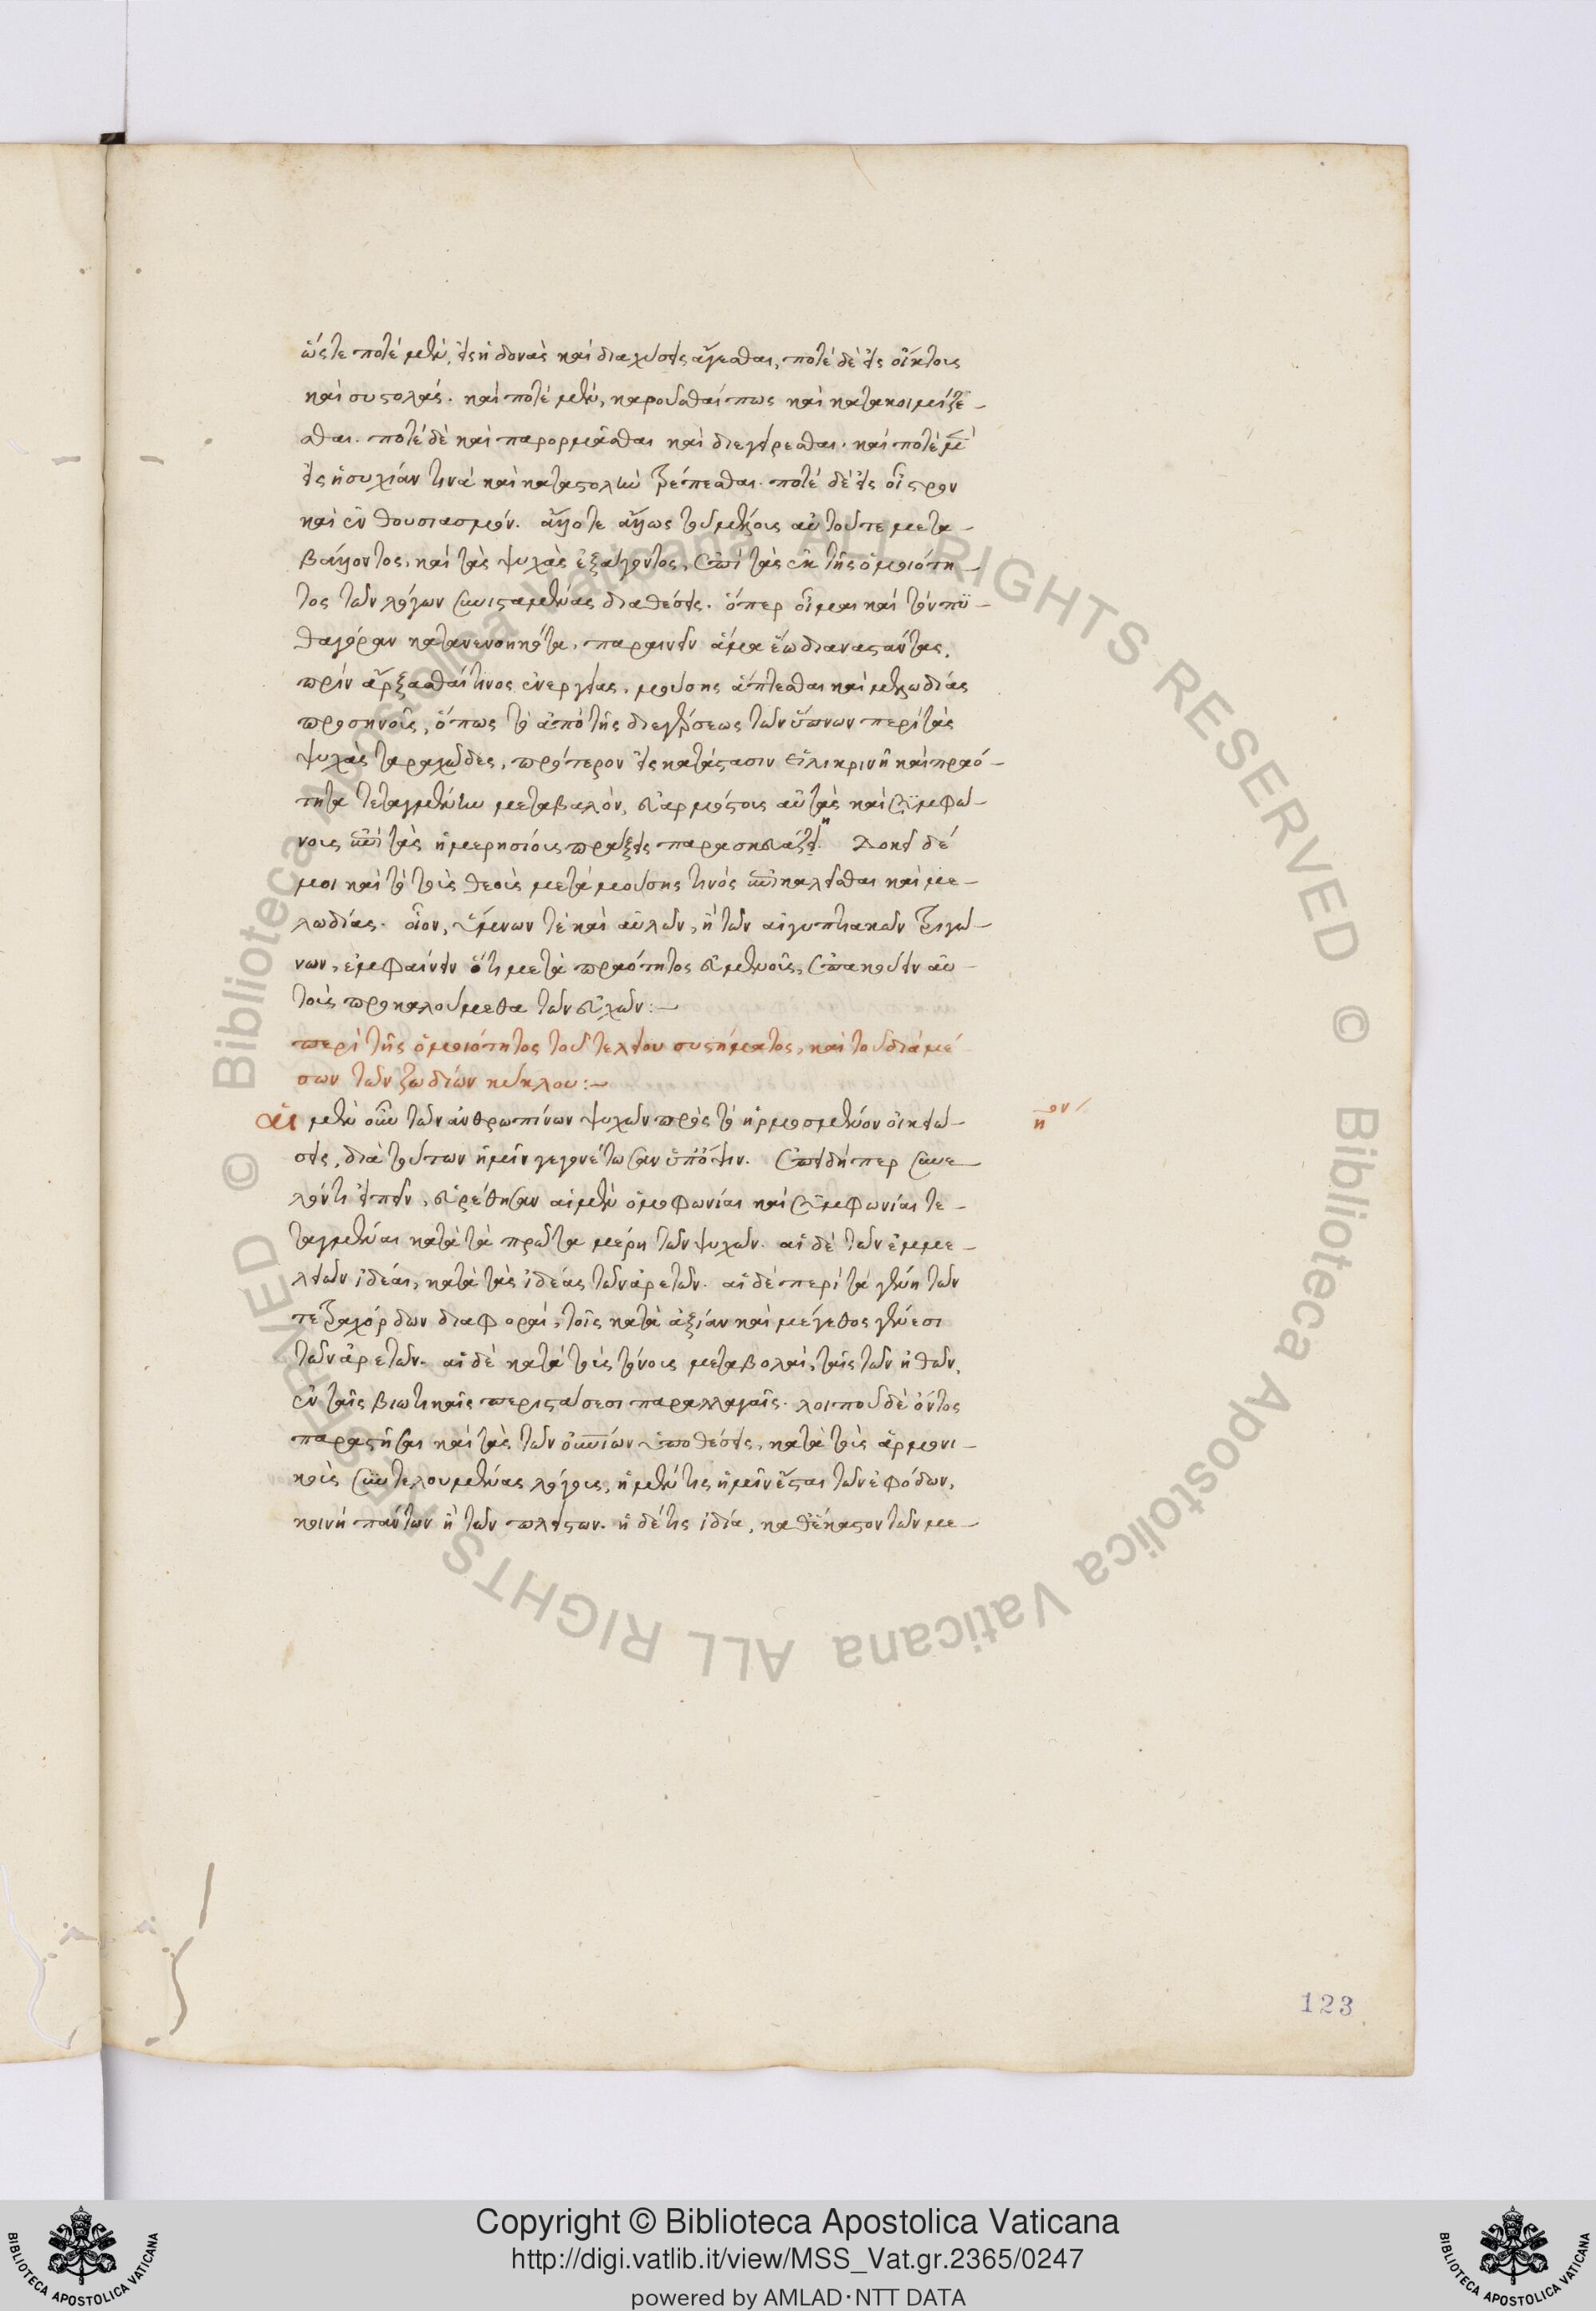 ὥστε ποτὲ μὲν, εἰς ἡδονὰς καὶ διαχύσεις ἄγεσθαι, ποτὲ δὲ εἰς οἴκτους
καὶ συστολάς. καὶ ποτὲ μὲν, καροῦσθαί πως καὶ κατακοιμίζε-
σθαι. ποτὲ δὲ καὶ παρορμᾶσθαι καὶ διεγείρεσθαι. καὶ ποτὲ μὲν
εἰς ἡσυχίαν τινὰ καὶ καταστολὴν τρέπεσθαι. ποτὲ δὲ εἰς οἶστρον
καὶ ἐνθουσιασμόν. ἄλλοτε ἄλλως τοῦ μέλους αὐτοῦ τε μετα-
βάλλοντος, καὶ τὰς ψυχὰς ἐξάγοντος, ἐπὶ τὰς ἐκ τῆς ὁμοιότη-
τος τῶν λόγων συνισταμένας διαθέσεις. ὅπερ οἶμαι καὶ τὸν πυ-
θαγόραν κατανενοηκότα, παραινεῖν ἅμα ἕω διαναστάντας,
πρὶν ἄρξασθαί τινος ἐνεργείας, μούσης ἅπτεσθαι καὶ μελωδίας
προσηνοῦς, ὅπως τὸ ἀπὸ τῆς διεγέρσεως τῶν ὕπνων περὶ τὰς
ψυχὰς ταραχῶδες, πρότερον εἰς κατάστασιν εἰλικρινῆ καὶ πραό-
τητα τεταγμένην μεταβαλὸν, εὐαρμόστους αὐτὰς καὶ συμφώ-
νους ἐπὶ τὰς ἡμερησίους πράξεις παρασκευάζῃ. Δοκεῖ δέ
μοι καὶ τὸ τοὺς θεοὺς μετὰ μούσης τινὸς ἐπικαλεῖσθαι καὶ με-
λωδίας. οἷον, ὕμνων τὲ καὶ αὐλῶν, ἢ τῶν αἰγυπτιακῶν τριγώ-
νων, ἐμφαίνειν ὅτι μετὰ πραότητος εὐμενοῦς, ἐπακούειν αὐ-
τοὺς προκαλούμεθα τῶν εὐχῶν:-
περὶ τῆς ὁμοιότητος τοῦ τελείου συστήματος, καὶ τοῦ διὰ μέ
σων τῶν ζωδίων κύκλου:-
αἱ μὲν οὖν τῶν ἀνθρωπίνων ψυχῶν πρὸς τὸ ἡρμοσμένον οἰκειώ-
σεις, διὰ τούτων ἡμῖν γεγονέτωσαν ὑπόψιν. ἐπειδήπερ συνε-
λόντι εἰπεῖν, εὑρέθησαν αἱ μὲν ὁμοφωνίαι καὶ συμφωνίαι τε-
ταγμέναι κατὰ τὰ πρῶτα μέρη τῶν ψυχῶν. αἱ δὲ τῶν ἐμμε-
λειῶν ἰδέαι, κατὰ τὰς ἰδέας τῶν ἀρετῶν. αἱ δὲ περὶ τὰ γένη τῶν
τετραχόρδων διαφοραὶ, τοῖς κατὰ ἀξίαν καὶ μέγεθος γένεσι
τῶν ἀρετῶν. αἱ δὲ κατὰ τοὺς τόνους μεταβολαὶ, ταῖς τῶν ἠθῶν,
ἐν ταῖς βιωτικαῖς περιστάσεσι παραλλαγαῖς. λοιποῦ δὲ ὄντος
παραστῆσαι καὶ τὰς τῶν οὐρανίων ὑποθέσεις, κατὰ τοὺς ἁρμονι-
κοὺς συντελουμένας λόγους, ἡ μέν τις ἡμῖν ἔσται τῶν ἐφόδων,
κοινὴ πάντων ἢ τῶν πλείστων. ἡ δέ τις ἰδία, καθ' ἕκαστον τῶν με-
123